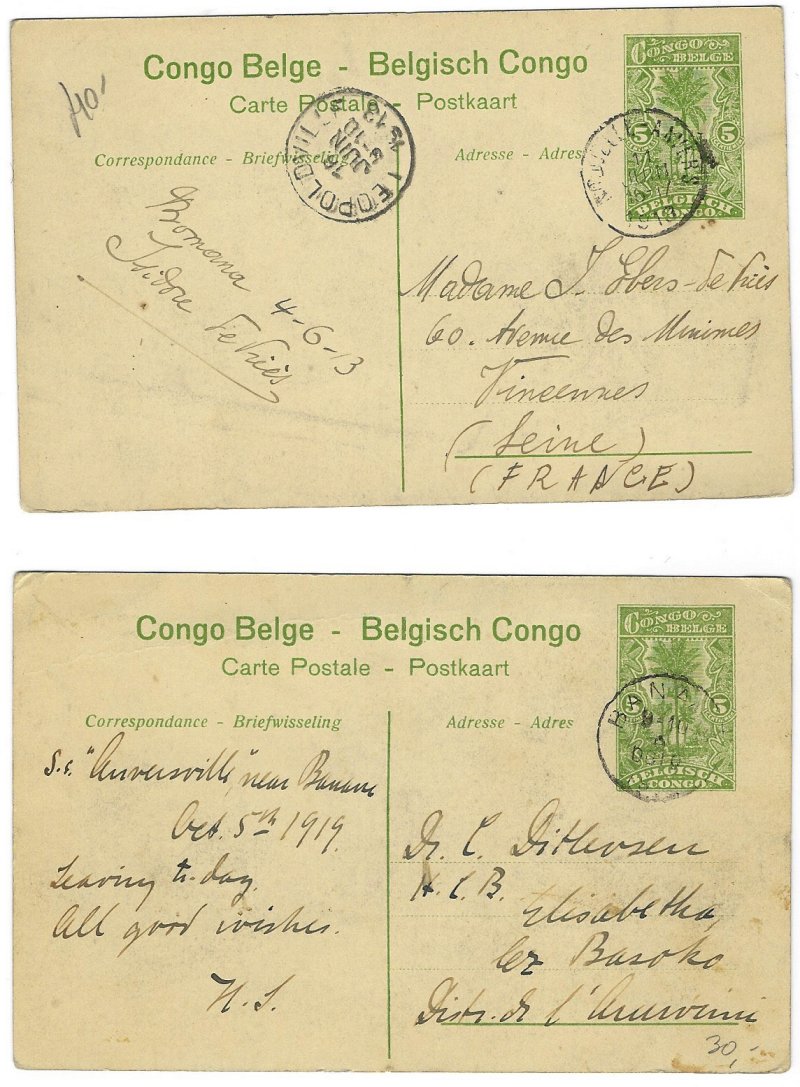 Congo Belge - Belgisch Congo
Carte Postale - Postkaart
Correspondance - Briefwisseling
Adresse - Adres
CONGO
BELGE
5 5
BELGISCH
CONGO
40.-
LEOPOLDVILLE
16
JUIN
9-10
13
1913
Bomana 4-6-13
Isidore DeVriès
Madame J. Ebers-DeVriès
60. Avenue des Minimes
Vincennes
(Seine)
(FRANCE)
Congo Belge - Belgisch Congo
Carte Postale - Postkaart
Correspondance - Briefwisseling
Adresse - Adres
CONGO
BELGE
5 5
BELGISCH
CONGO
BANANA
S.s. "Anversville", near Banana
Oct. 5th 1919.
Leaving to-day.
All good wishes.
H. S.
Dr. C. Ditlevsen
H. C. B.
Elisabetha,
lez Basoko
Distr. de l'Aruwimi
30,-